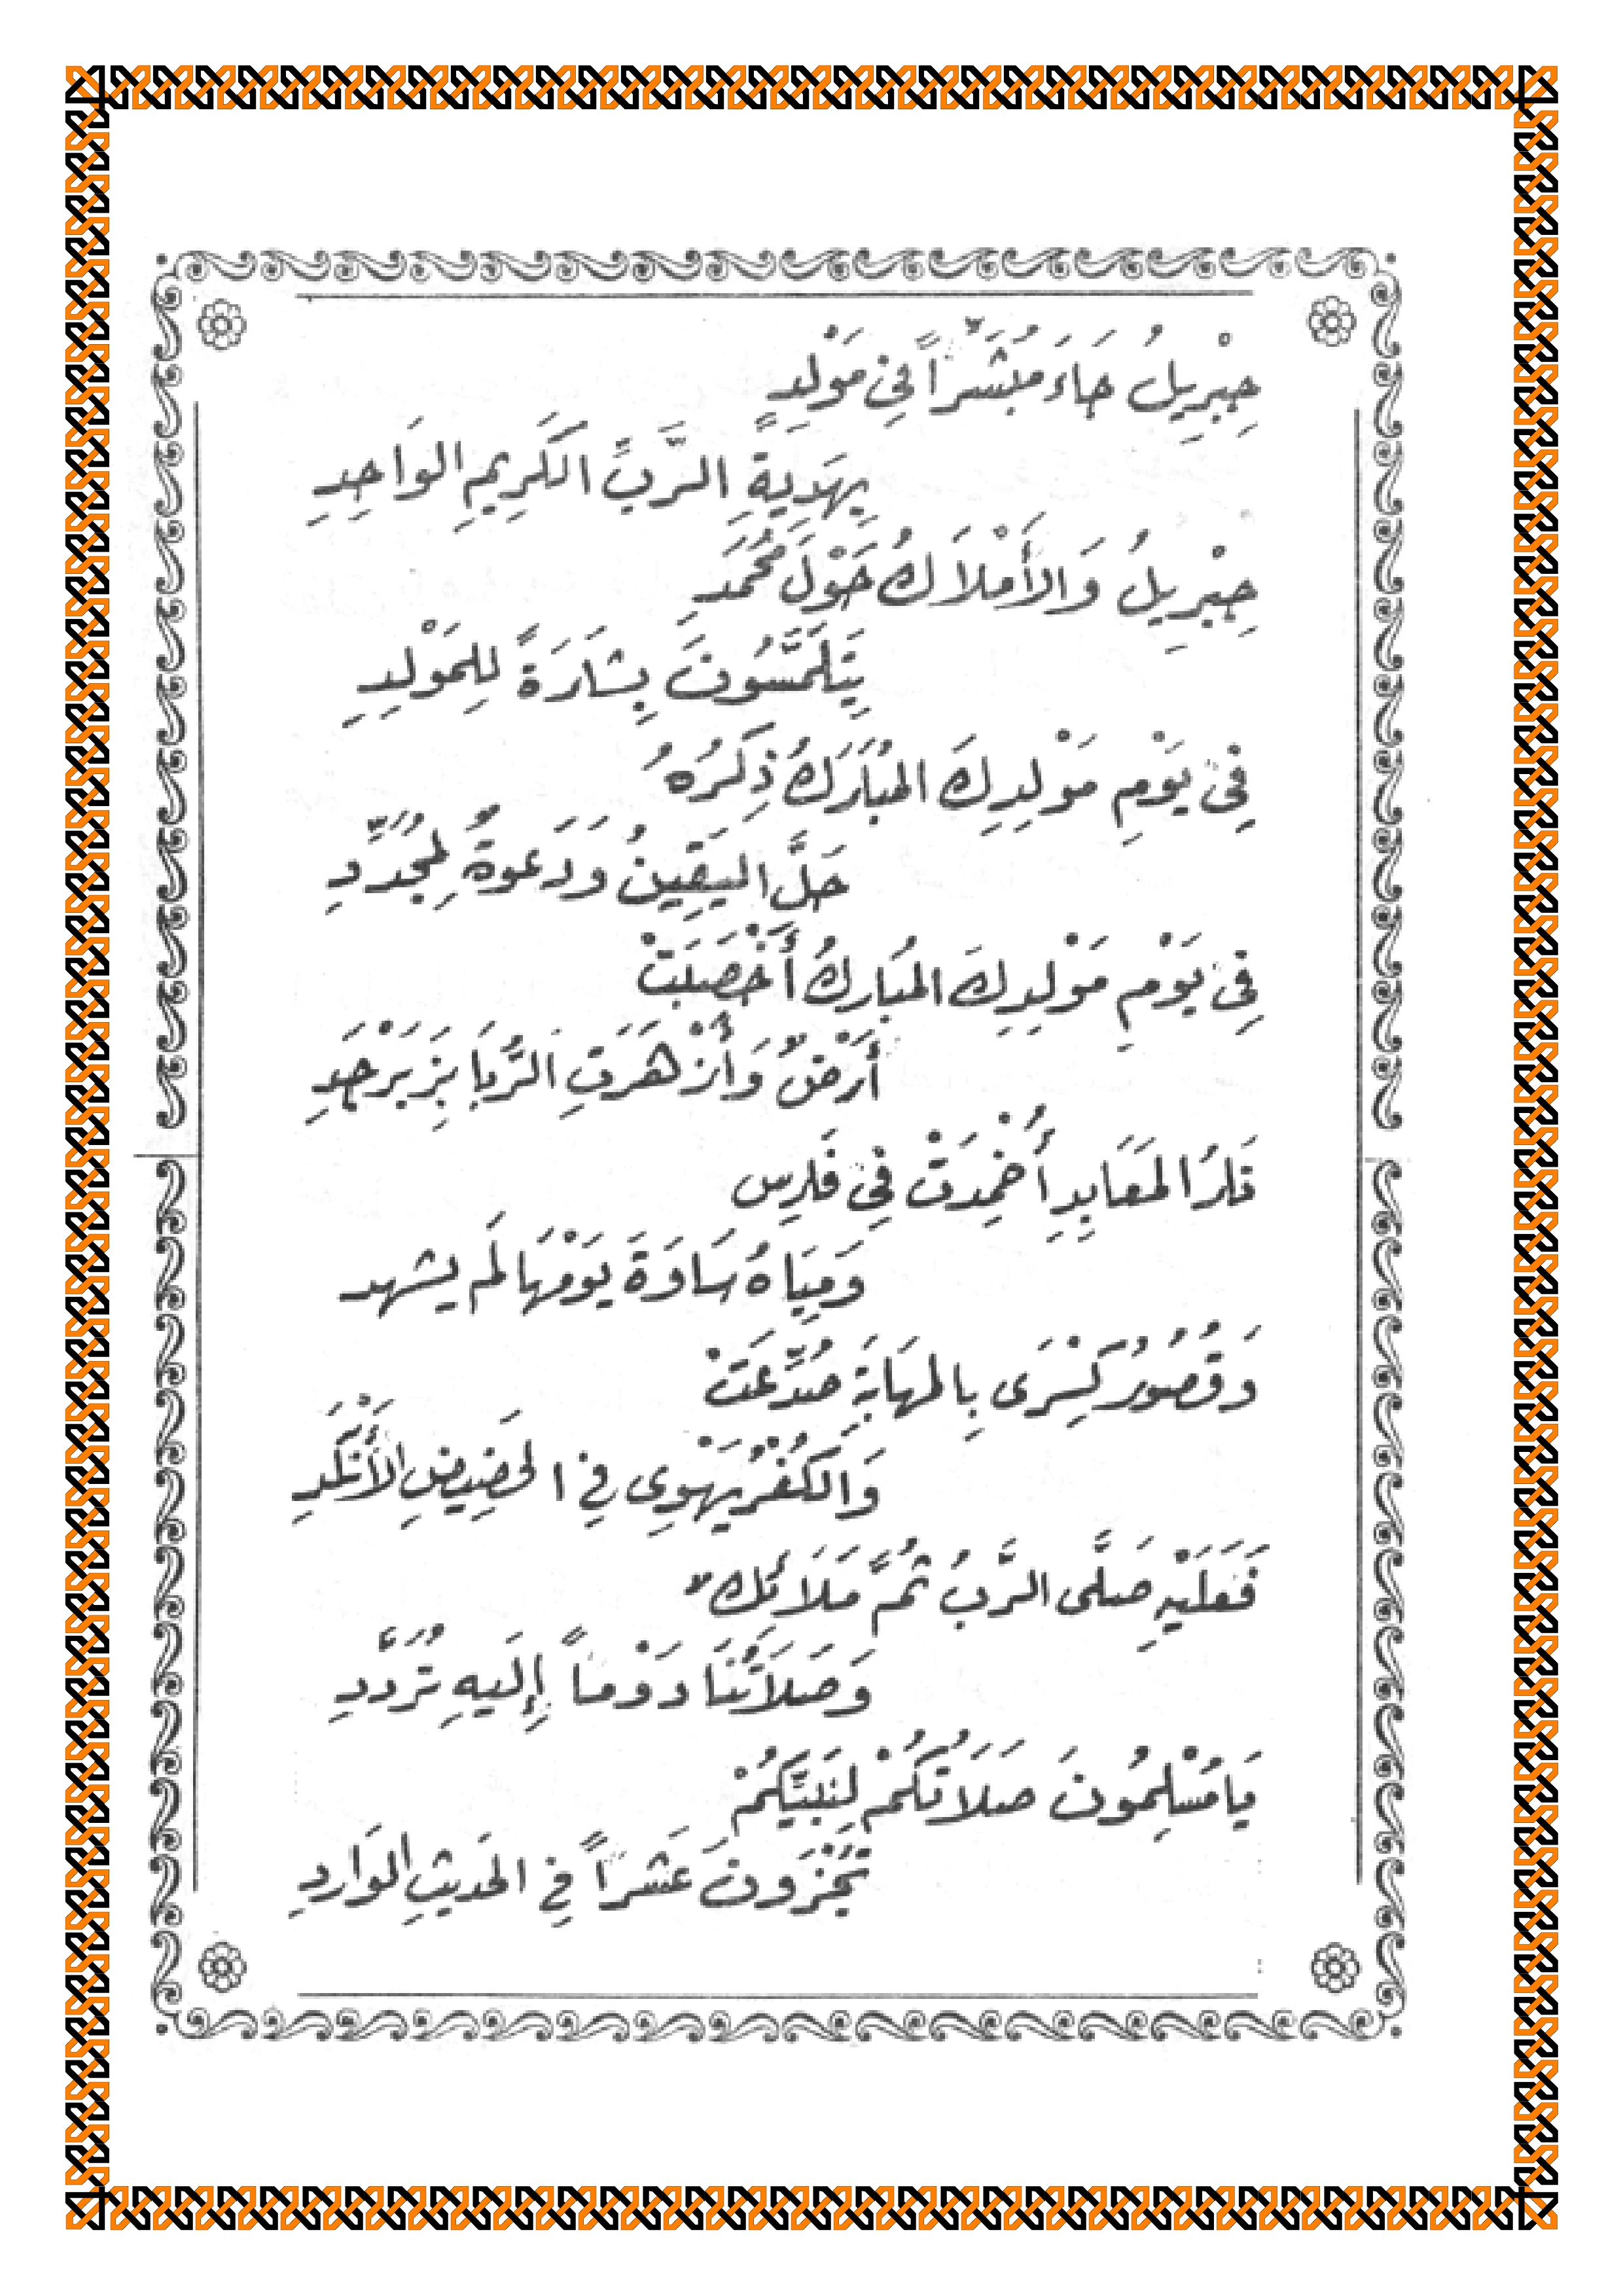 جِبْرِيلُ جَاءَ مُبَشِّراً فِي مَوْلِدِ
بِهَدِيةِ الرَّبِّ الكَرِيمِ الوَاحِدِ
جِبْرِيلُ وَالأَمْلَاكُ حَوْلَ مُحَمَّدِ
يَتَلَمَّسُونَ بِشَارَةً لِلمَوْلِدِ
فِي يَوْمِ مَوْلِدِكَ المُبَارَكُ ذِكرُهُ
حَلَّ اليَقِينُ وَدَعوةٌ لِمُجَدِّدِ
فِي يَوْمِ مَوْلِدِكَ المُبَاركُ أَخْصَبَتْ
أَرْضٌ وَأَزْهَرَتِ الرُّبَا بِزَبَرْجَدِ
نَارُ المَعَابِدِ أُخْمِدَتْ فِي فَارِس
وَمِيَاهُ سَاوَةَ يَوْمَهَا لَم يشهد
وَقُصُورُ كِسْرَى بِالمَهَابَةِ صُدِّعَتْ
وَالكُفْرُ يَهْوِي فِي الحَضِيضِ الأَنْكَدِ
فَعَلَيْهِ صَلَّى الرَّبُ ثُمَّ مَلَائكٌ
وَصَلَاتُنَا دَوْماً إِلَيهِ تُرَدَّدِ
يَا مُسْلِمُونَ صَلَاتُكُمْ لِنَبِيِّكُمْ
تُجْزَونَ عَشراً فِي الحَديثِ الوَاردِ